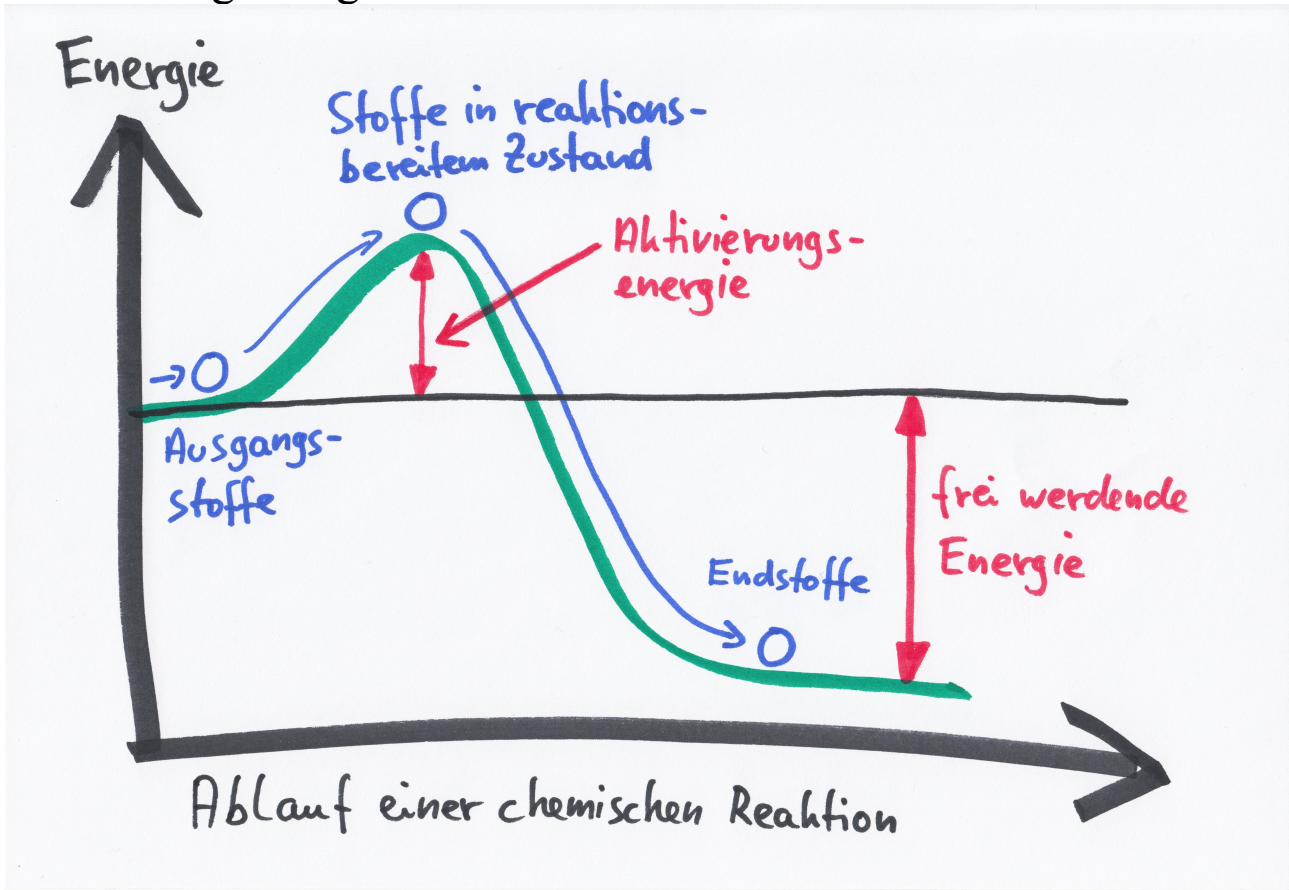 Energie
Stoffe in reaktions-
bereitem Zustand
Aktivierungs-
energie
Ausgangs-
stoffe
frei werdende
Energie
Endstoffe
Ablauf einer chemischen Reaktion